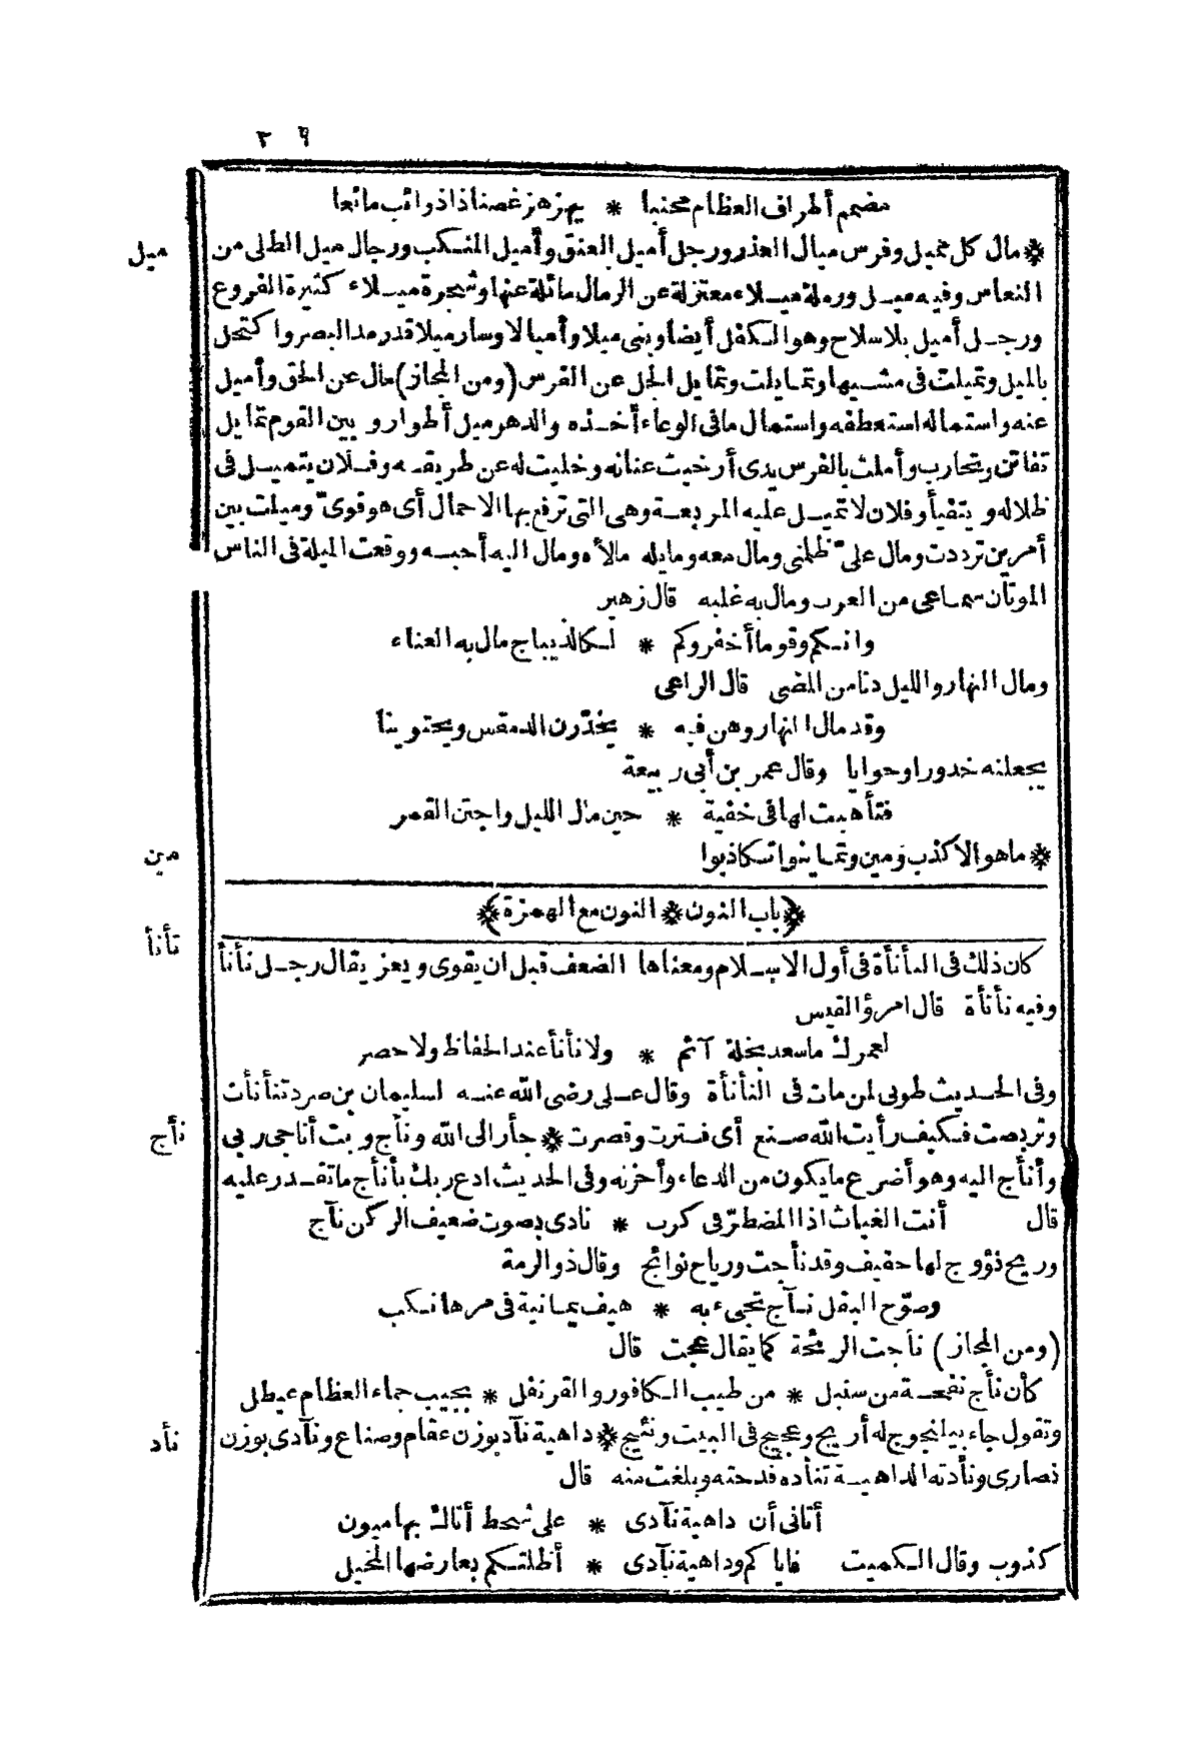 ٢٩
مضمم أطراف العظام محنبا * يهزهز غصنا ذا ذوائب مائعا
ميل
* مال كل مميل وفرس ميال العذر ورجل أميل العنق وأميل المنكب ورجال ميل الطلى من
النعاس وفيه ميل ورملة ميلاء معتزلة عن الرمال مائلة عنها وشجرة ميلاء كثيرة الفروع
ورجل أميل بلا سلاح وهو الكفل أيضا وبنى ميلا وأميالا وسار ميلا قدر مد البصر واكتحل
بالميل وتميلت في مشيها وتمايلت وتمايل الجل عن الفرس (ومن المجاز) مال عن الحق وأميل
عنه واستماله استعطفه واستمال ما في الوعاء أخذه والدهر ميل أطوار وبين القوم تمايل
تفاتن وتحارب وأملت بالفرس يدى أرخيت عنانه وخليت له عن طريقه وفلان يتميل في
ظلاله ويتفيأ وفلان لا تميل عليه المربعة وهي التي ترفع بها الاحمال أى هو قوىّ وميلت بين
أمرين ترددت ومال علىّ ظلمنى ومال معه ومايله مالأه ومال اليه أحبه ووقعت الميلة في الناس
الموتان سماعى من العرب ومال به غلبه قال زهير
وانكم وقوما أخفروكم * لكالديباج مال به العناء
ومال النهار والليل دنا من المضى قال الراعى
وقد مال النهار وهن فيه * يخدّرن الدمقس ويحتوينا
يجعلنه خدورا وحوايا وقال عمر بن أبى ربيعة
فتأهبت لها في خفية * حين مال الليل واجتن القمر
مين
* ما هو الا كذب ومين وتماينوا تكاذبوا
﴿باب النون * النون مع الهمزة﴾
نأنأ
كان ذلك في النأنأة في أول الاسلام ومعناها الضعف قبل ان يقوى ويعز يقال رجل نأنأ
وفيه نأنأة قال امرؤ القيس
لعمرك ما سعد بخلة آثم * ولا نأنأ عند الحفاظ ولا حصر
وفى الحديث طوبى لمن مات في النأنأة وقال على رضى الله عنه لسليمان بن صرد تنأنأت
نأج
وتربصت فكيف رأيت الله صنع أى فترت وقصرت * جأر الى الله ونأج وبت أناجى ربى
وأنأج اليه وهو أضرع ما يكون من الدعاء وأحزنه وفى الحديث ادع ربك بأنأج ما تقدر عليه
قال أنت الغياث اذا المضطرّ في كرب * نادى بصوت ضعيف الركن نآج
وريح نؤوج لها حفيف وقد نأجت ورياح نوائج وقال ذو الرمة
وصوّح البقل نآج تجىء به * هيف يمانية في مرها نكب
(ومن المجاز) نأجت الرئحة كما يقال عجت قال
كأن نأج نفحة من سنبل * من طيب الكافور والقرنفل * بجيب جماء العظام عيطل
نأد
وتقول جاء بيلنجوج له أريج وعجيج في البيت ونئيج * داهية نآد بوزن عقام وصناع ونآدى بوزن
نصارى ونأدته الداهية تنأده فدحته وبلغت منه قال
أتانى أن داهية نآدى * على شحط أتاك بها ميون
كذوب وقال الكميت فاياكم وداهية نآدى * أظلتكم بعارضها المخيل